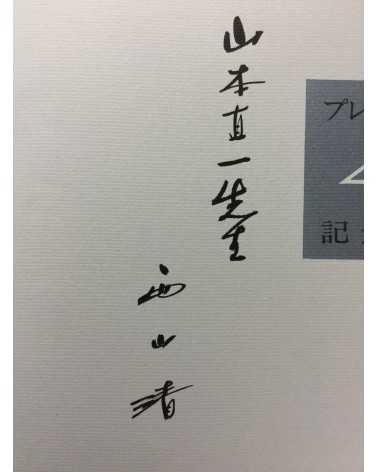 山本直一先生
西山清
プレ
記